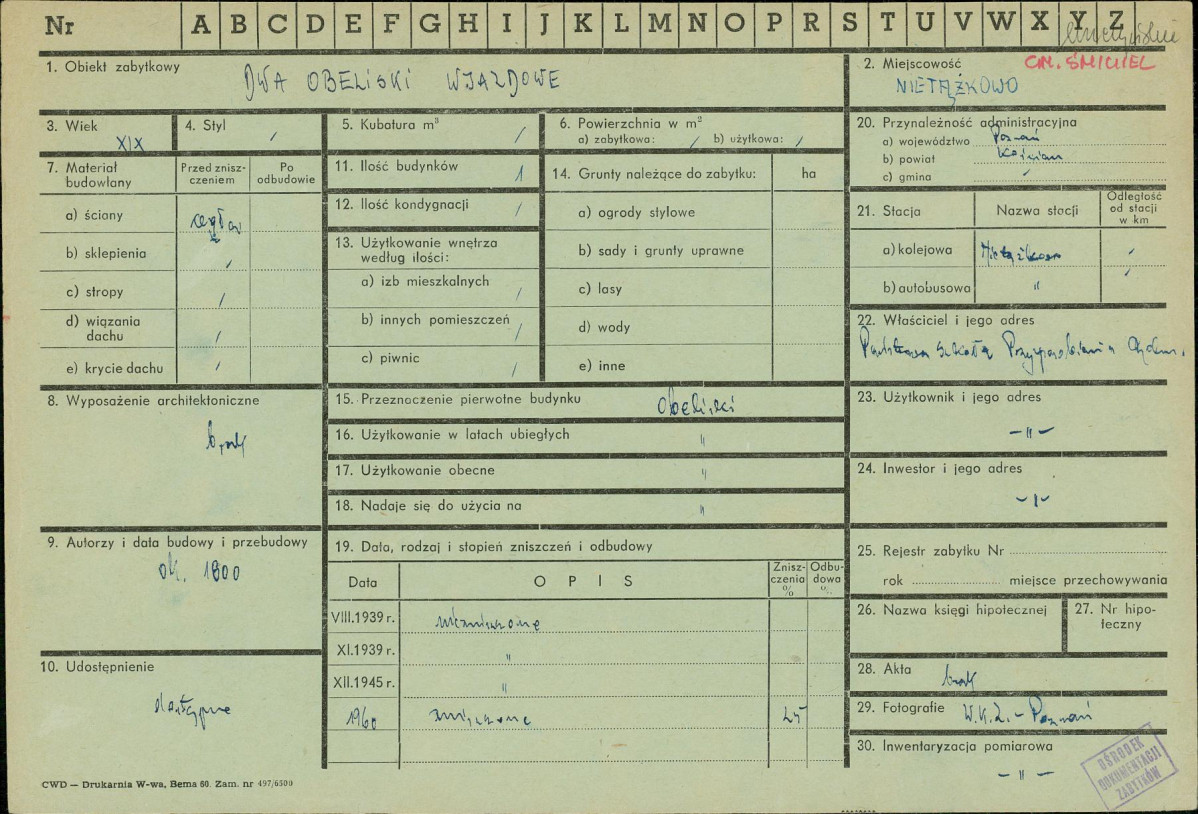 Nr A B C D E F G H I J K L M N O P R S T U V W X Y Z
1. Obiekt zabytkowy
DWA OBELISKI WJAZDOWE
2. Miejscowość
GM. ŚMIGIEL
NIETĄŻKOWO
3. Wiek
XIX
4. Styl /
5. Kubatura m³ /
6. Powierzchnia w m²
a) zabytkowa: / b) użytkowa: /
20. Przynależność administracyjna
a) województwo Poznań
b) powiat Kościan
c) gmina /
7. Materiał budowlany
Przed znisz-
czeniem
Po
odbudowie
a) ściany cegła
b) sklepienia /
c) stropy /
d) wiązania
dachu /
e) krycie dachu /
11. Ilość budynków 1
12. Ilość kondygnacji /
13. Użytkowanie wnętrza
według ilości:
a) izb mieszkalnych /
b) innych pomieszczeń /
c) piwnic /
14. Grunty należące do zabytku: ha
a) ogrody stylowe
b) sady i grunty uprawne
c) lasy
d) wody
e) inne
21. Stacja Nazwa stacji
Odległość
od stacji
w km
a) kolejowa Nietążkowo /
b) autobusowa " /
22. Właściciel i jego adres
Państwowa Szkoła Przysposobienia
8. Wyposażenie architektoniczne
brak
15. Przeznaczenie pierwotne budynku Obeliski
16. Użytkowanie w latach ubiegłych "
17. Użytkowanie obecne "
18. Nadaje się do użycia na "
23. Użytkownik i jego adres
– " –
24. Inwestor i jego adres
– " –
9. Autorzy i data budowy i przebudowy
ok. 1800
19. Data, rodzaj i stopień zniszczeń i odbudowy
Data OPIS
Znisz-
czenia
%
Odbu-
dowa
%
VIII.1939 r. niezniszczone
XI.1939 r. "
XII.1945 r. "
1960 zniszczone 25
25. Rejestr zabytku Nr
rok miejsce przechowywania
26. Nazwa księgi hipotecznej
27. Nr hipo-
teczny
10. Udostępnienie
dostępne
28. Akta brak
29. Fotografie W.K.Z. – Poznań
30. Inwentaryzacja pomiarowa
– " –
OŚRODEK
DOKUMENTACJI
ZABYTKÓW
CWD — Drukarnia W-wa, Bema 60. Zam. nr 497/6500